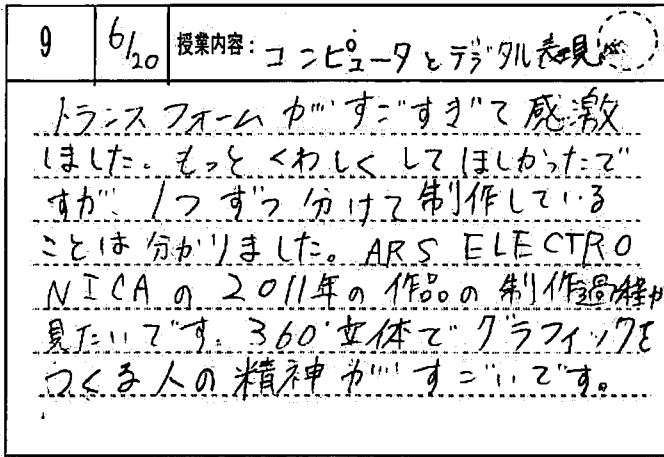 9 6/20 授業内容: コンピュータとデジタル表現
トランスフォームがすごすぎて感激
しました。もっとくわしくしてほしかったで
すが、1つずつ分けて制作している
ことは分かりました。ARS ELECTRO
NICAの2011年の作品の制作過程が
見たいです。360°立体でグラフィックを
つくる人の精神がすごいです。